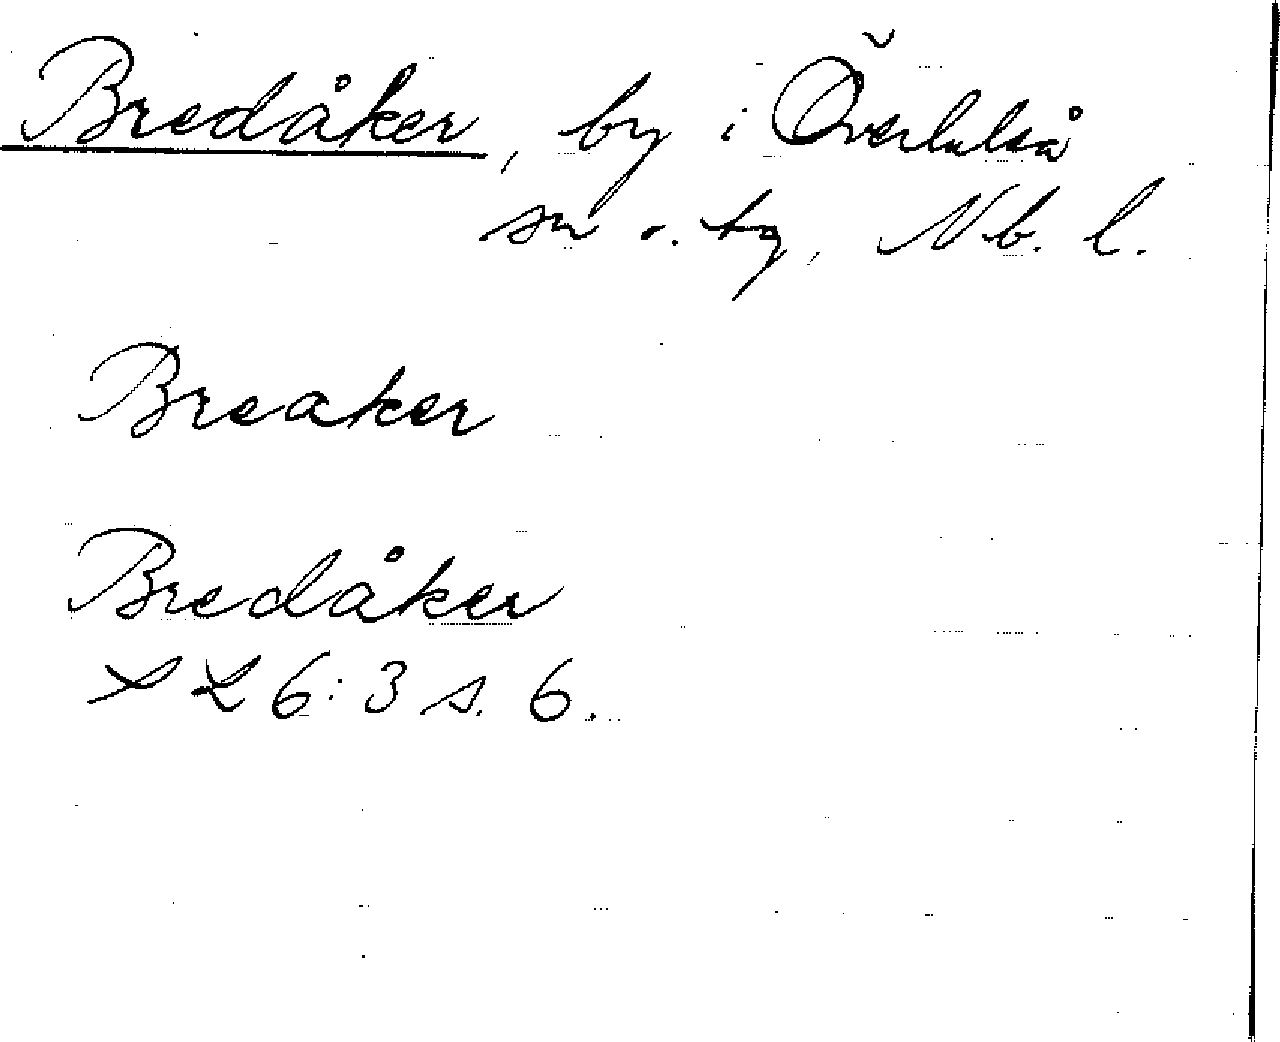 Bredåker, by i Överluleå
sn o. tg, Nb. l.
Breaker
Bredåker
6:3 s. 6.